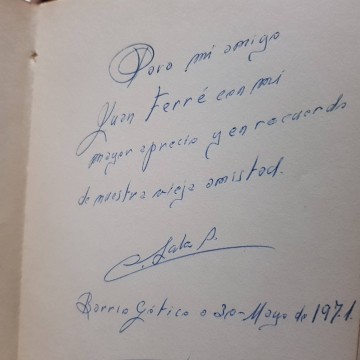 Para mi amigo
Juan Ferré con mi
mayor aprecio y en recuerdo
de nuestra vieja amistad.
Barrio Gótico a 30-Mayo de 1971.